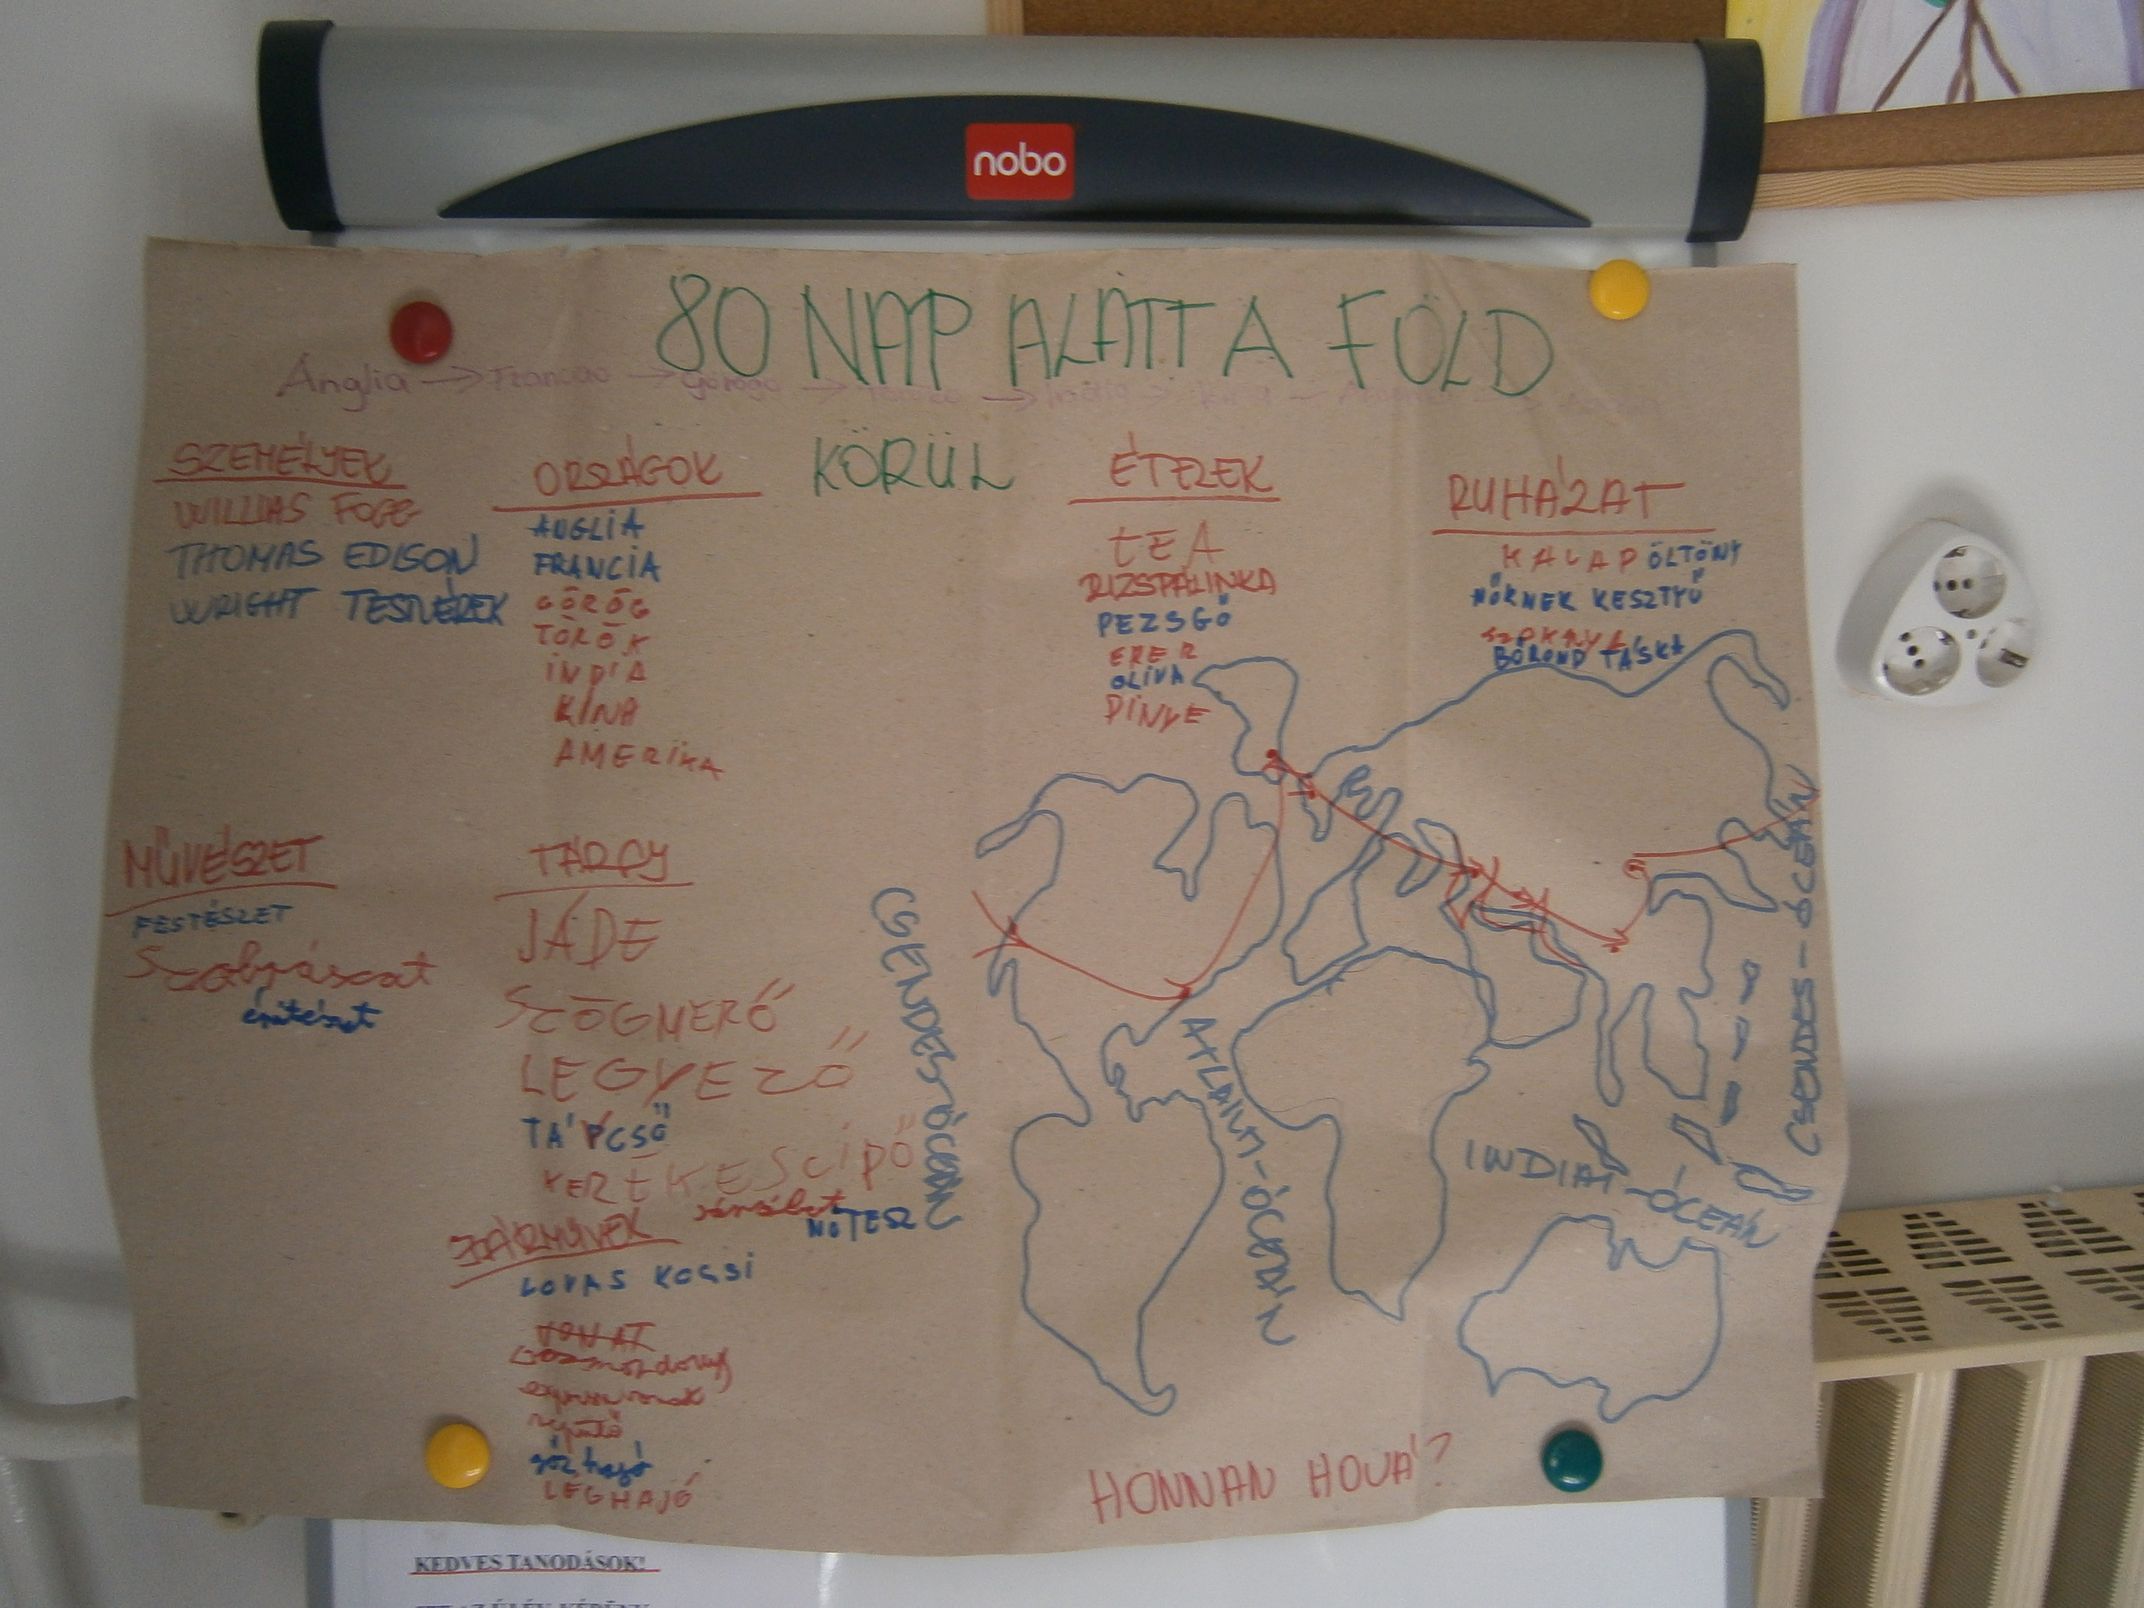 nobo
80 NAP ALATT A FÖLD
KÖRÜL
Anglia → Franciao → Görögo → → India → Kína →
SZEMÉLYEK
WILLIAS FOGG
THOMAS EDISON
WRIGHT TESVÉREK
ORSZÁGOK
ANGLIA
FRANCIA
GÖRÖG
TÖRÖK
INDIA
KÍNA
AMERIKA
ÉTELEK
TEA
RIZSPÁLINKA
PEZSGŐ
OLIVA
DINYE
RUHÁZAT
KALAP ÖLTÖNY
NŐKNEK KESZTYŰ
SZOKNYA
BŐRÖND TÁSKA
MŰVÉSZET
FESTÉSZET
Szobrászat
építészet
TÁRGY
JÁDE
SZÖGMERŐ
LEGYEZŐ
TÁPCSŐ
KEREKESCIPŐ
NOTESZ
JÁRMŰVEK
LOVAS KOCSI
VONAT
Gőzmozdony
repülő
gőzhajó
LÉGHAJÓ
CSENDES-ÓCEÁN
ATLANTI-ÓCEÁN
INDIAI-ÓCEÁN
CSENDES-ÓCEÁN
HONNAN HOVÁ?
KEDVES TANODÁSOK!